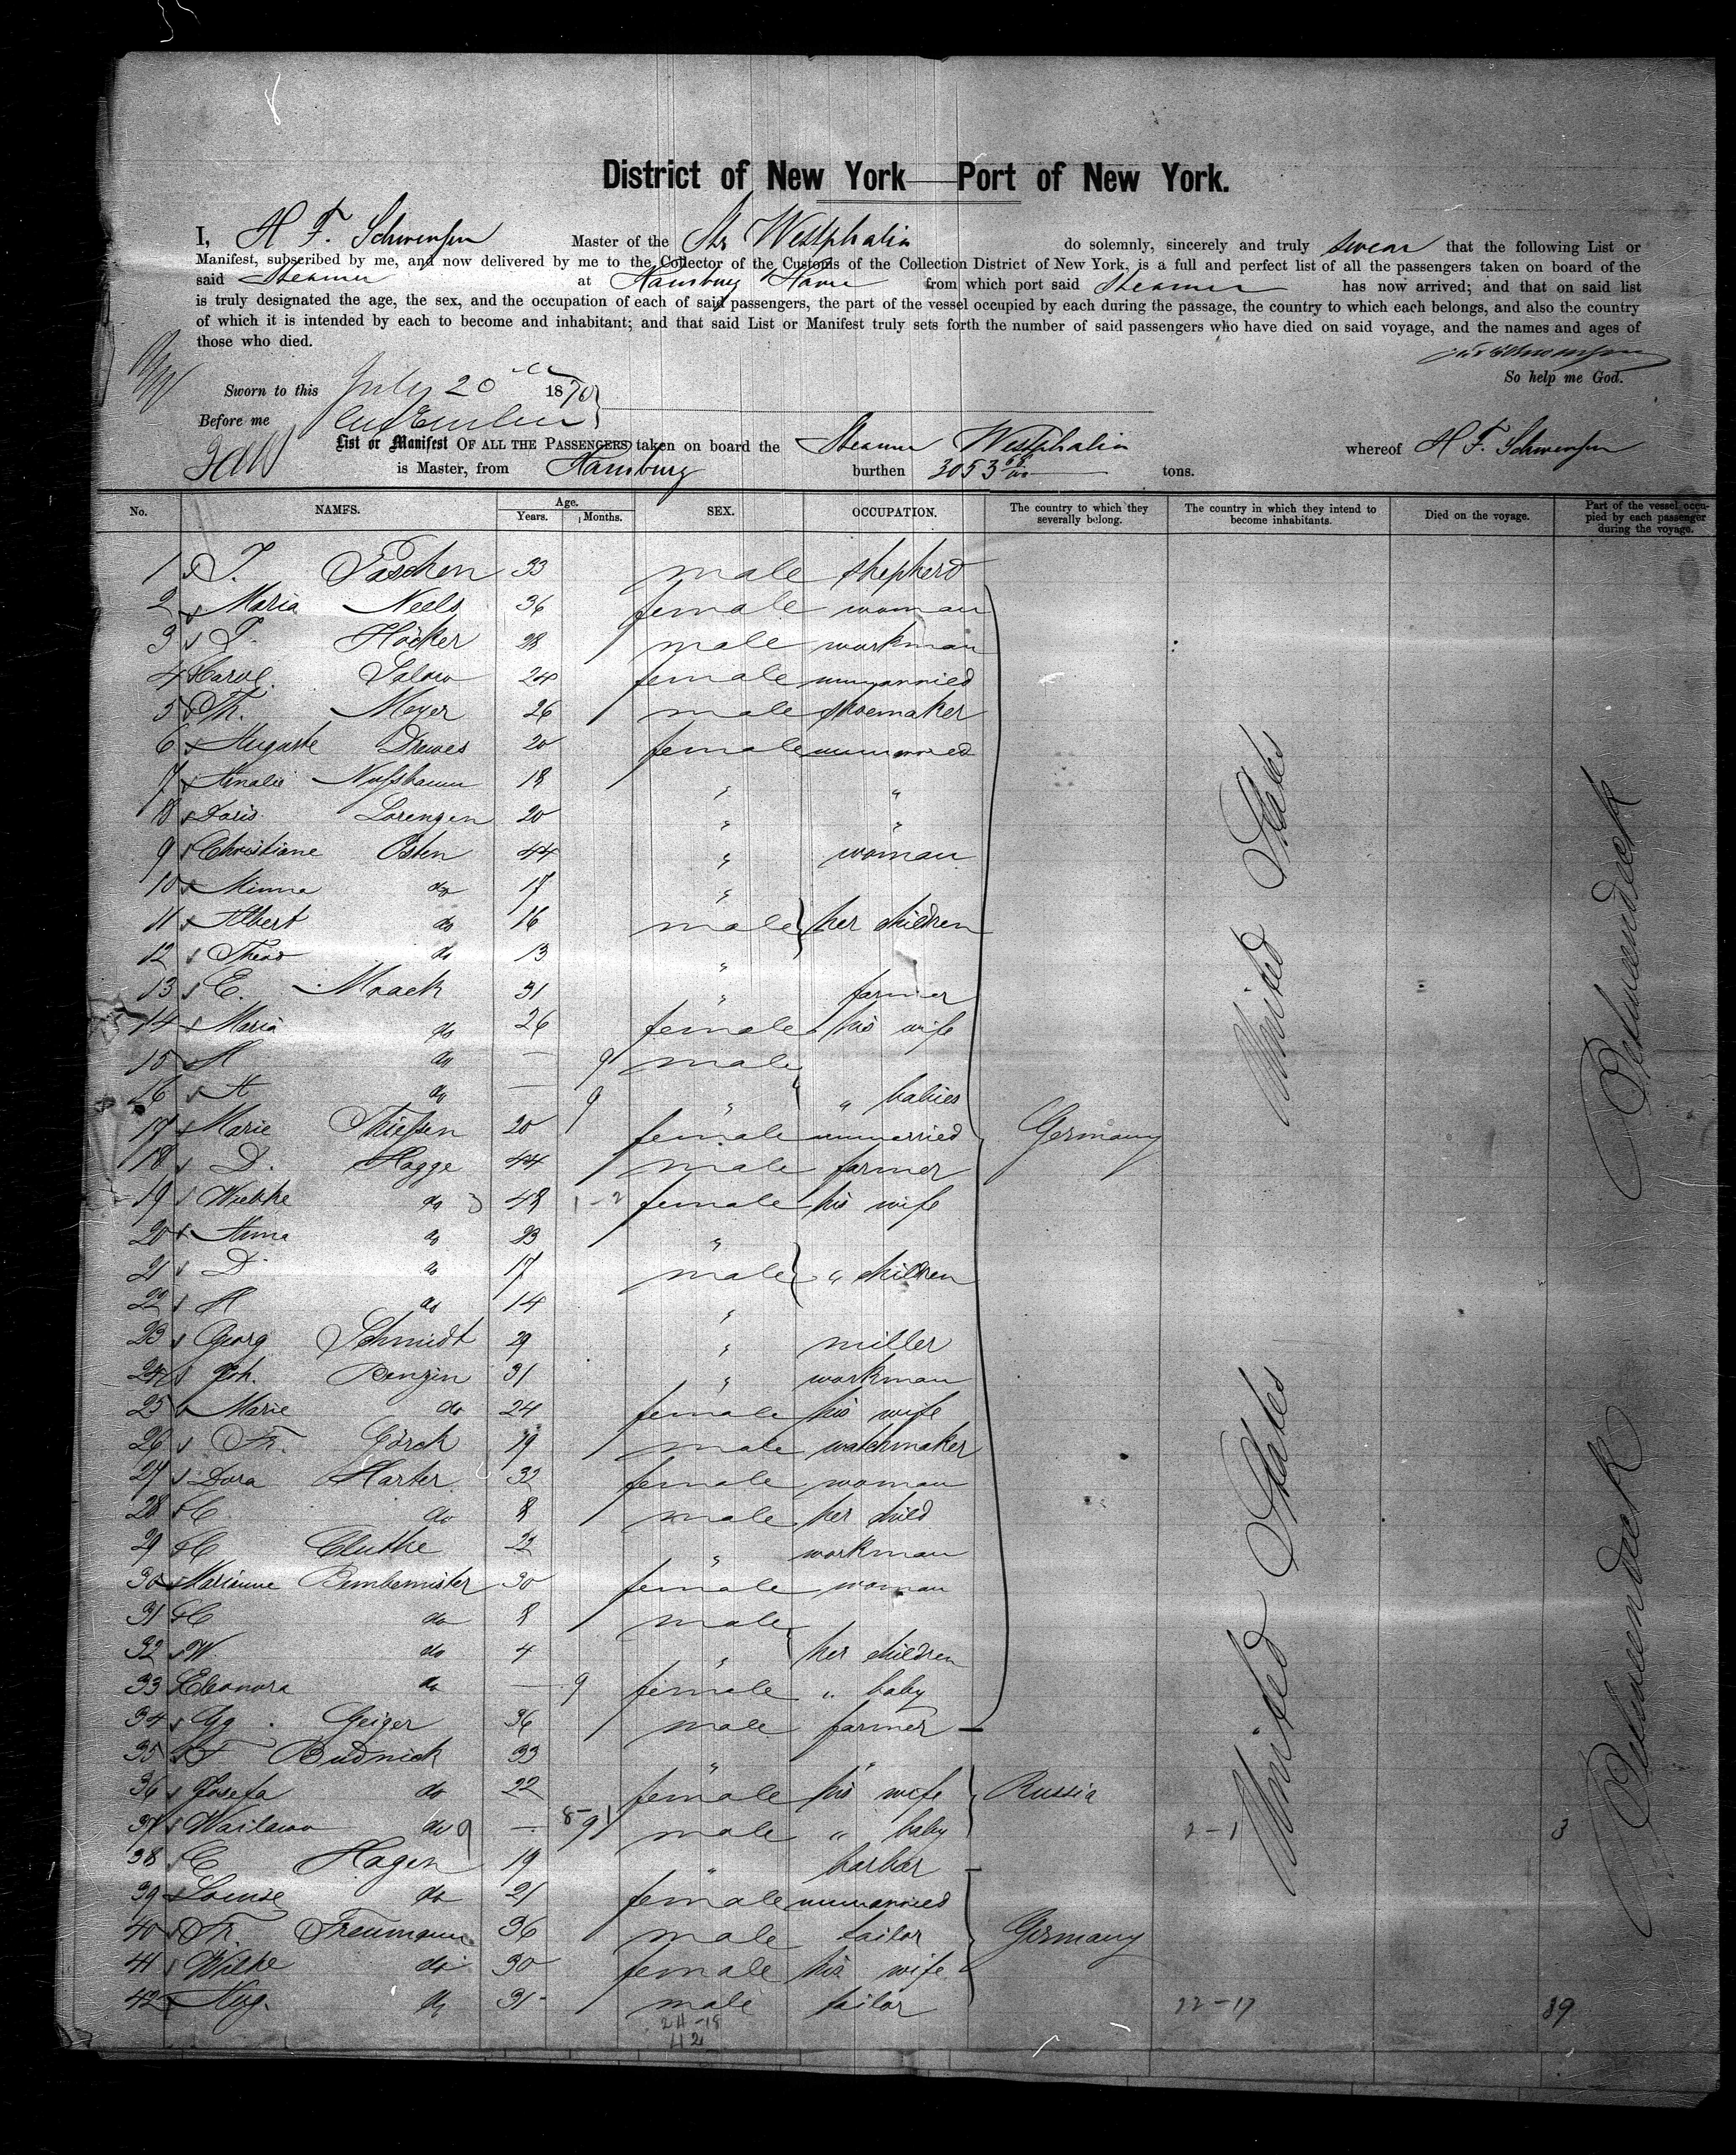 District of New York Port of New York.
I, H F. Schwensen Master of the Str Westphalia do solemnly, sincerely and truly swear that the following List or
Manifest, subscribed by me, and now delivered by me to the Collector of the Customs of the Collection District of New York, is a full and perfect list of all the passengers taken on board of the
said Steamer at Hamburg Havre from which port said Steamer has now arrived; and that on said list
is truly designated the age, the sex, and the occupation of each of said passengers, the part of the vessel occupied by each during the passage, the country to which each belongs, and also the country
of which it is intended by each to become and inhabitant; and that said List or Manifest truly sets forth the number of said passengers who have died on said voyage, and the names and ages of
those who died.
So help me God.
Sworn to this July 20 1870
Before me
List or Manifest OF ALL THE PASSENGERS taken on board the Steamer Westphalia whereof H F. Schwensen
is Master, from Hamburg burthen 3053 tons.
No. NAMES. Age. Years. Months. SEX. OCCUPATION. The country to which they severally belong. The country in which they intend to become inhabitants. Died on the voyage. Part of the vessel occupied by each passenger during the voyage.
1 J. Paschen 33 male shepherd
2 Maria Neels 36 female woman
3 J. Höcker 28 male workman
4 Carol. Salow 24 female unmarried
5 Th. Meyer 26 male shoemaker
6 Auguste Drewes 20 female unmarried
7 Amalie Nußbaum 18 " "
8 Doris Lorenzen 20 " "
9 Christiane Osten 44 " woman
10 Minna do 17 "
11 Albert do 16 male her children
12 Theod do 13 "
13 E. Maack 31 " farmer
14 Maria do 26 female his wife
15 H do — 9 male
16 A do — 9 " " babies
17 Marie Thießen 20 female unmarried Germany
18 D. Hagge 44 male farmer
19 Wiebke do 48 female his wife
20 Anna do 23 "
21 D do 17 male " children
22 H do 14 "
23 Georg Schmidt 29 " miller
24 Joh. Benzin 31 " workman
25 Marie do 24 female his wife
26 Fr. Görck 19 male watchmaker
27 Dora Harter 32 female woman
28 C do 8 male her child
29 C Cluthe 22 " workman
30 Marianne Bembemister 30 female woman
31 C do 8 male
32 W. do 4 " her children
33 Eleonora do — 9 female " baby
34 Gg. Geiger 36 male farmer
35 F Budnick 33 " "
36 Josefa do 22 female his wife Russia
37 Wailaw do — 9 male " baby 2-1 3
38 C Hagen 19 " barbar
39 Louise do 21 female unmarried
40 Fr. Freumann 36 male tailor Germany
41 Wilke do 30 female his wife
42 Aug. do 31 male tailor 22-17 39
24-18
42
United States
United States
Betweendeck
Betweendeck